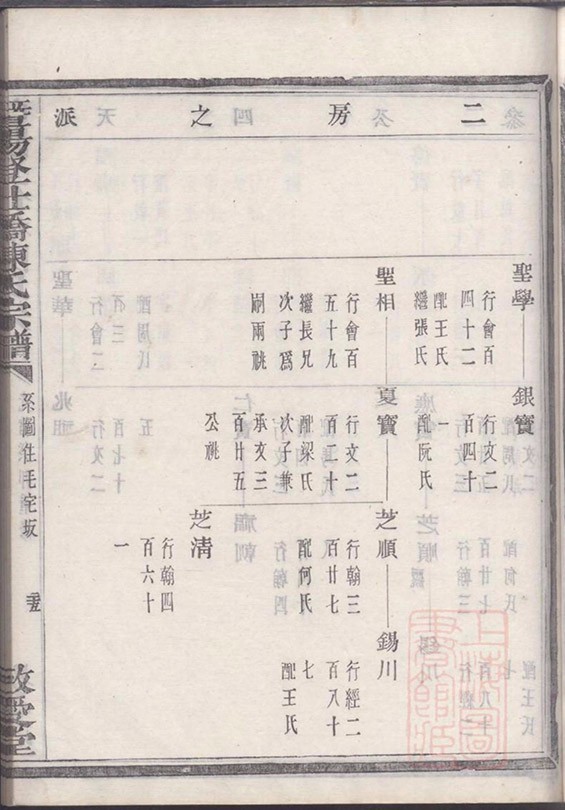 二房之派
聖學
行會百
四十二
配王氏
繼張氏
銀寶
行文二
百四十
一
配阮氏
聖相
行會百
五十九
繼長兄
次子爲
嗣兩祧
夏寶
行文二
百二十
配梁氏
次子兼
承文三
百廿五
公祧
芝順
行翰三
百廿七
配何氏
錫川
行經二
百八十
七
配王氏
芝清
行翰四
百六十
一
暨陽
橋陳氏宗譜
系圖住毛宅坂
敦愛堂
上海圖書館藏